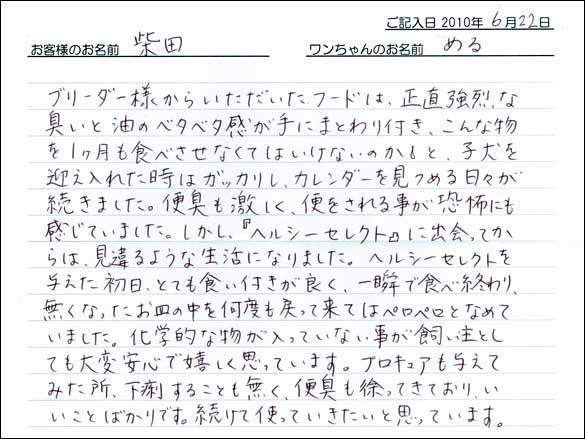 ご記入日 2010年 6月22日
お客様のお名前 柴田 ワンちゃんのお名前 める
ブリーダー様からいただいたフードは、正直強烈な
臭いと油のベタベタ感が手にまとわり付き、こんな物
を1ヶ月も食べさせなくてはいけないのかもと、子犬を
迎え入れた時はガッカリし、カレンダーを見つめる日々が
続きました。便臭も激しく、便をされる事が恐怖にも
感じていました。しかし、『ヘルシーセレクト』に出会ってか
らは、見違るような生活になりました。ヘルシーセレクトを
与えた初日、とても食い付きが良く、一瞬で食べ終わり、
無くなったお皿の中を何度も戻って来てはペロペロとなめて
いました。化学的な物が入っていない事が飼い主とし
ても大変安心で嬉しく思っています。ブロキュアも与えて
みた所、下痢することも無く、便臭も徐ってきており、い
いことばかりです。続けて使っていきたいと思っています。